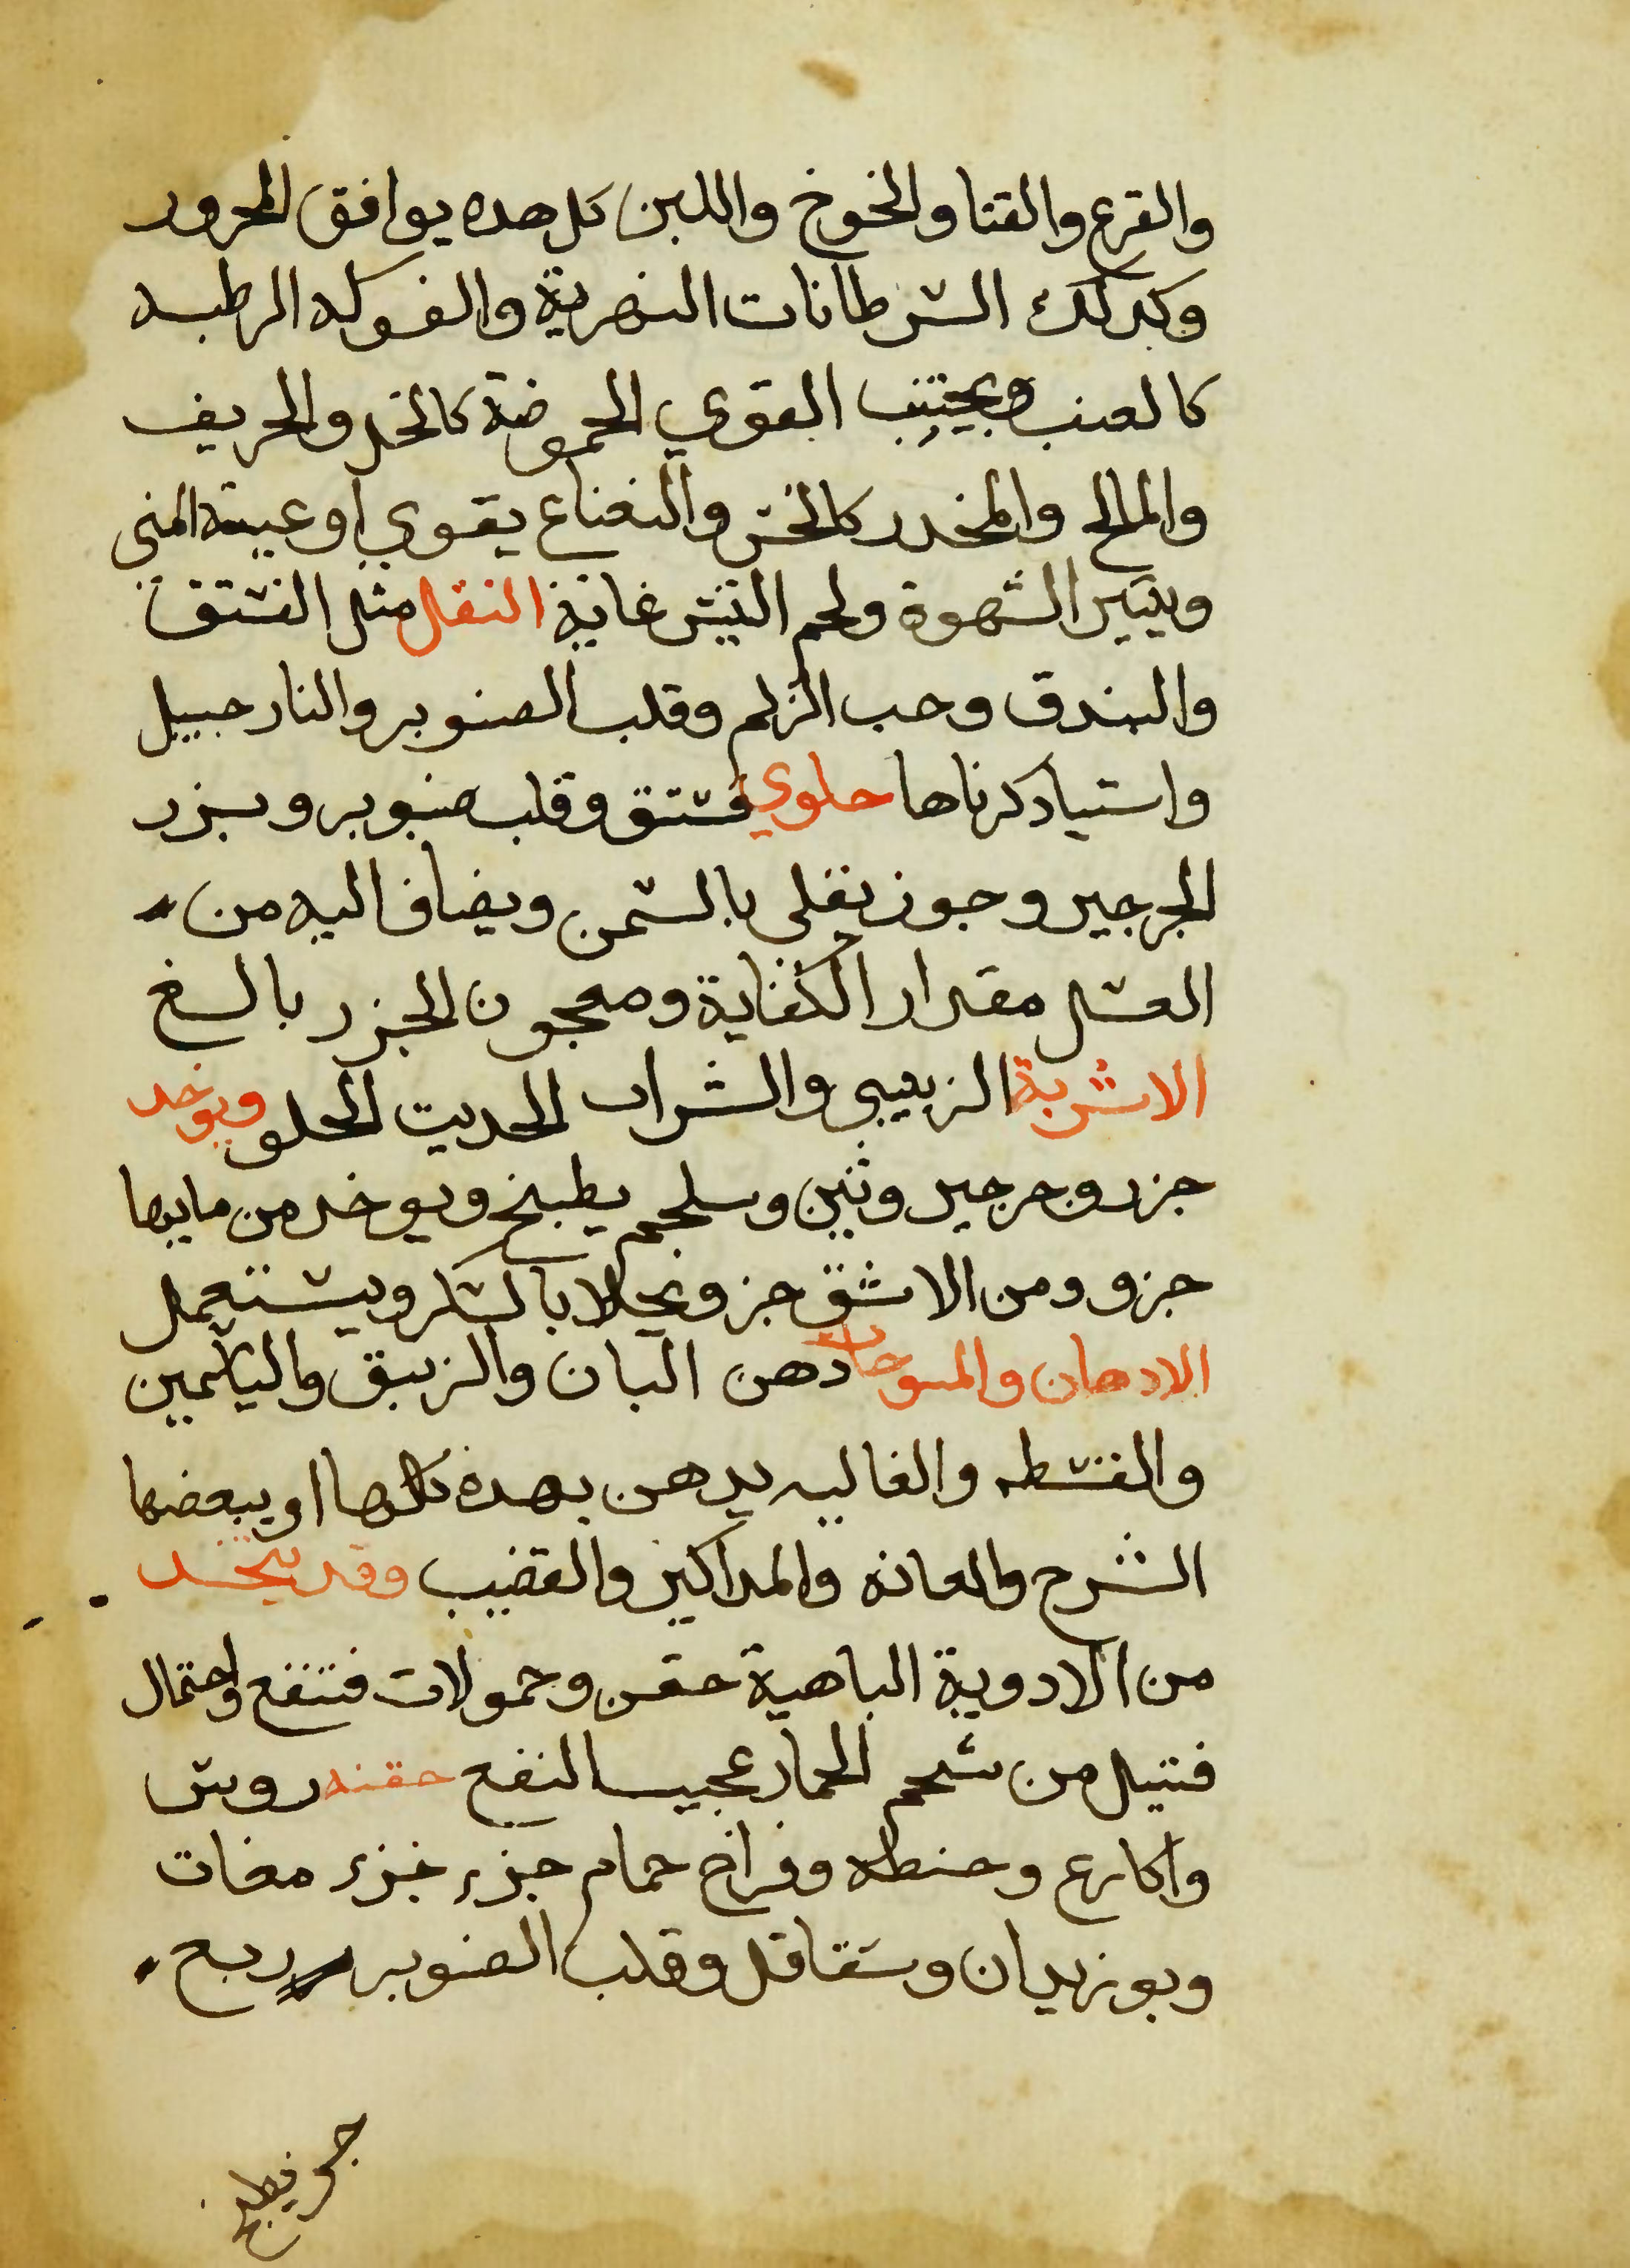 والقرع والقثا والخوخ واللبن كل هده يوافق المحرور
وكدلك السرطانات النهرية والفوكه الرطبه
كالعنب ويجتنب القوي الحموضة كالخل والحريف
والمالح والمخدر كالخس والنعناع يقوي اوعية المنى
ويثير الشهوة ولحم التيس غاية النقل مثل الفستق
والبندق وحب الزلم وقلب الصنوبر والنارجبيل
واستيا دكرناها حلوي فستق وقلب صنوبر وبزر
الجرجير وجوز يقلى بالسمن ويضاف اليه من
العسل مقدار الكفاية ومعجون الجزر بالغ
الاشربة الزبيبى والشراب الحديت الحلو ويوخد
جزر وجرجير وتين وسلجم يطبخ ويوخد من مايها
جزو ومن الاشق جزو بحلا بالسكر ويستعمل
الادهان والمسوحات دهن البان والزيبق والياسمين
والقسطه والغاليه يدهن بهده كلها او ببعضها
الشرج والعانه والمداكير والقضيب وقد يتخد
من الادوية الباهية حقن وحمولات فتنفع واحتمال
فتيل من شحم الحمار عجيب النفع حقنه روس
واكارع وحنطه وفراخ حمام جزء جزء مغات
وبوزيدان وسقاقل وقلب الصنوبر ربع
جر يطبخ